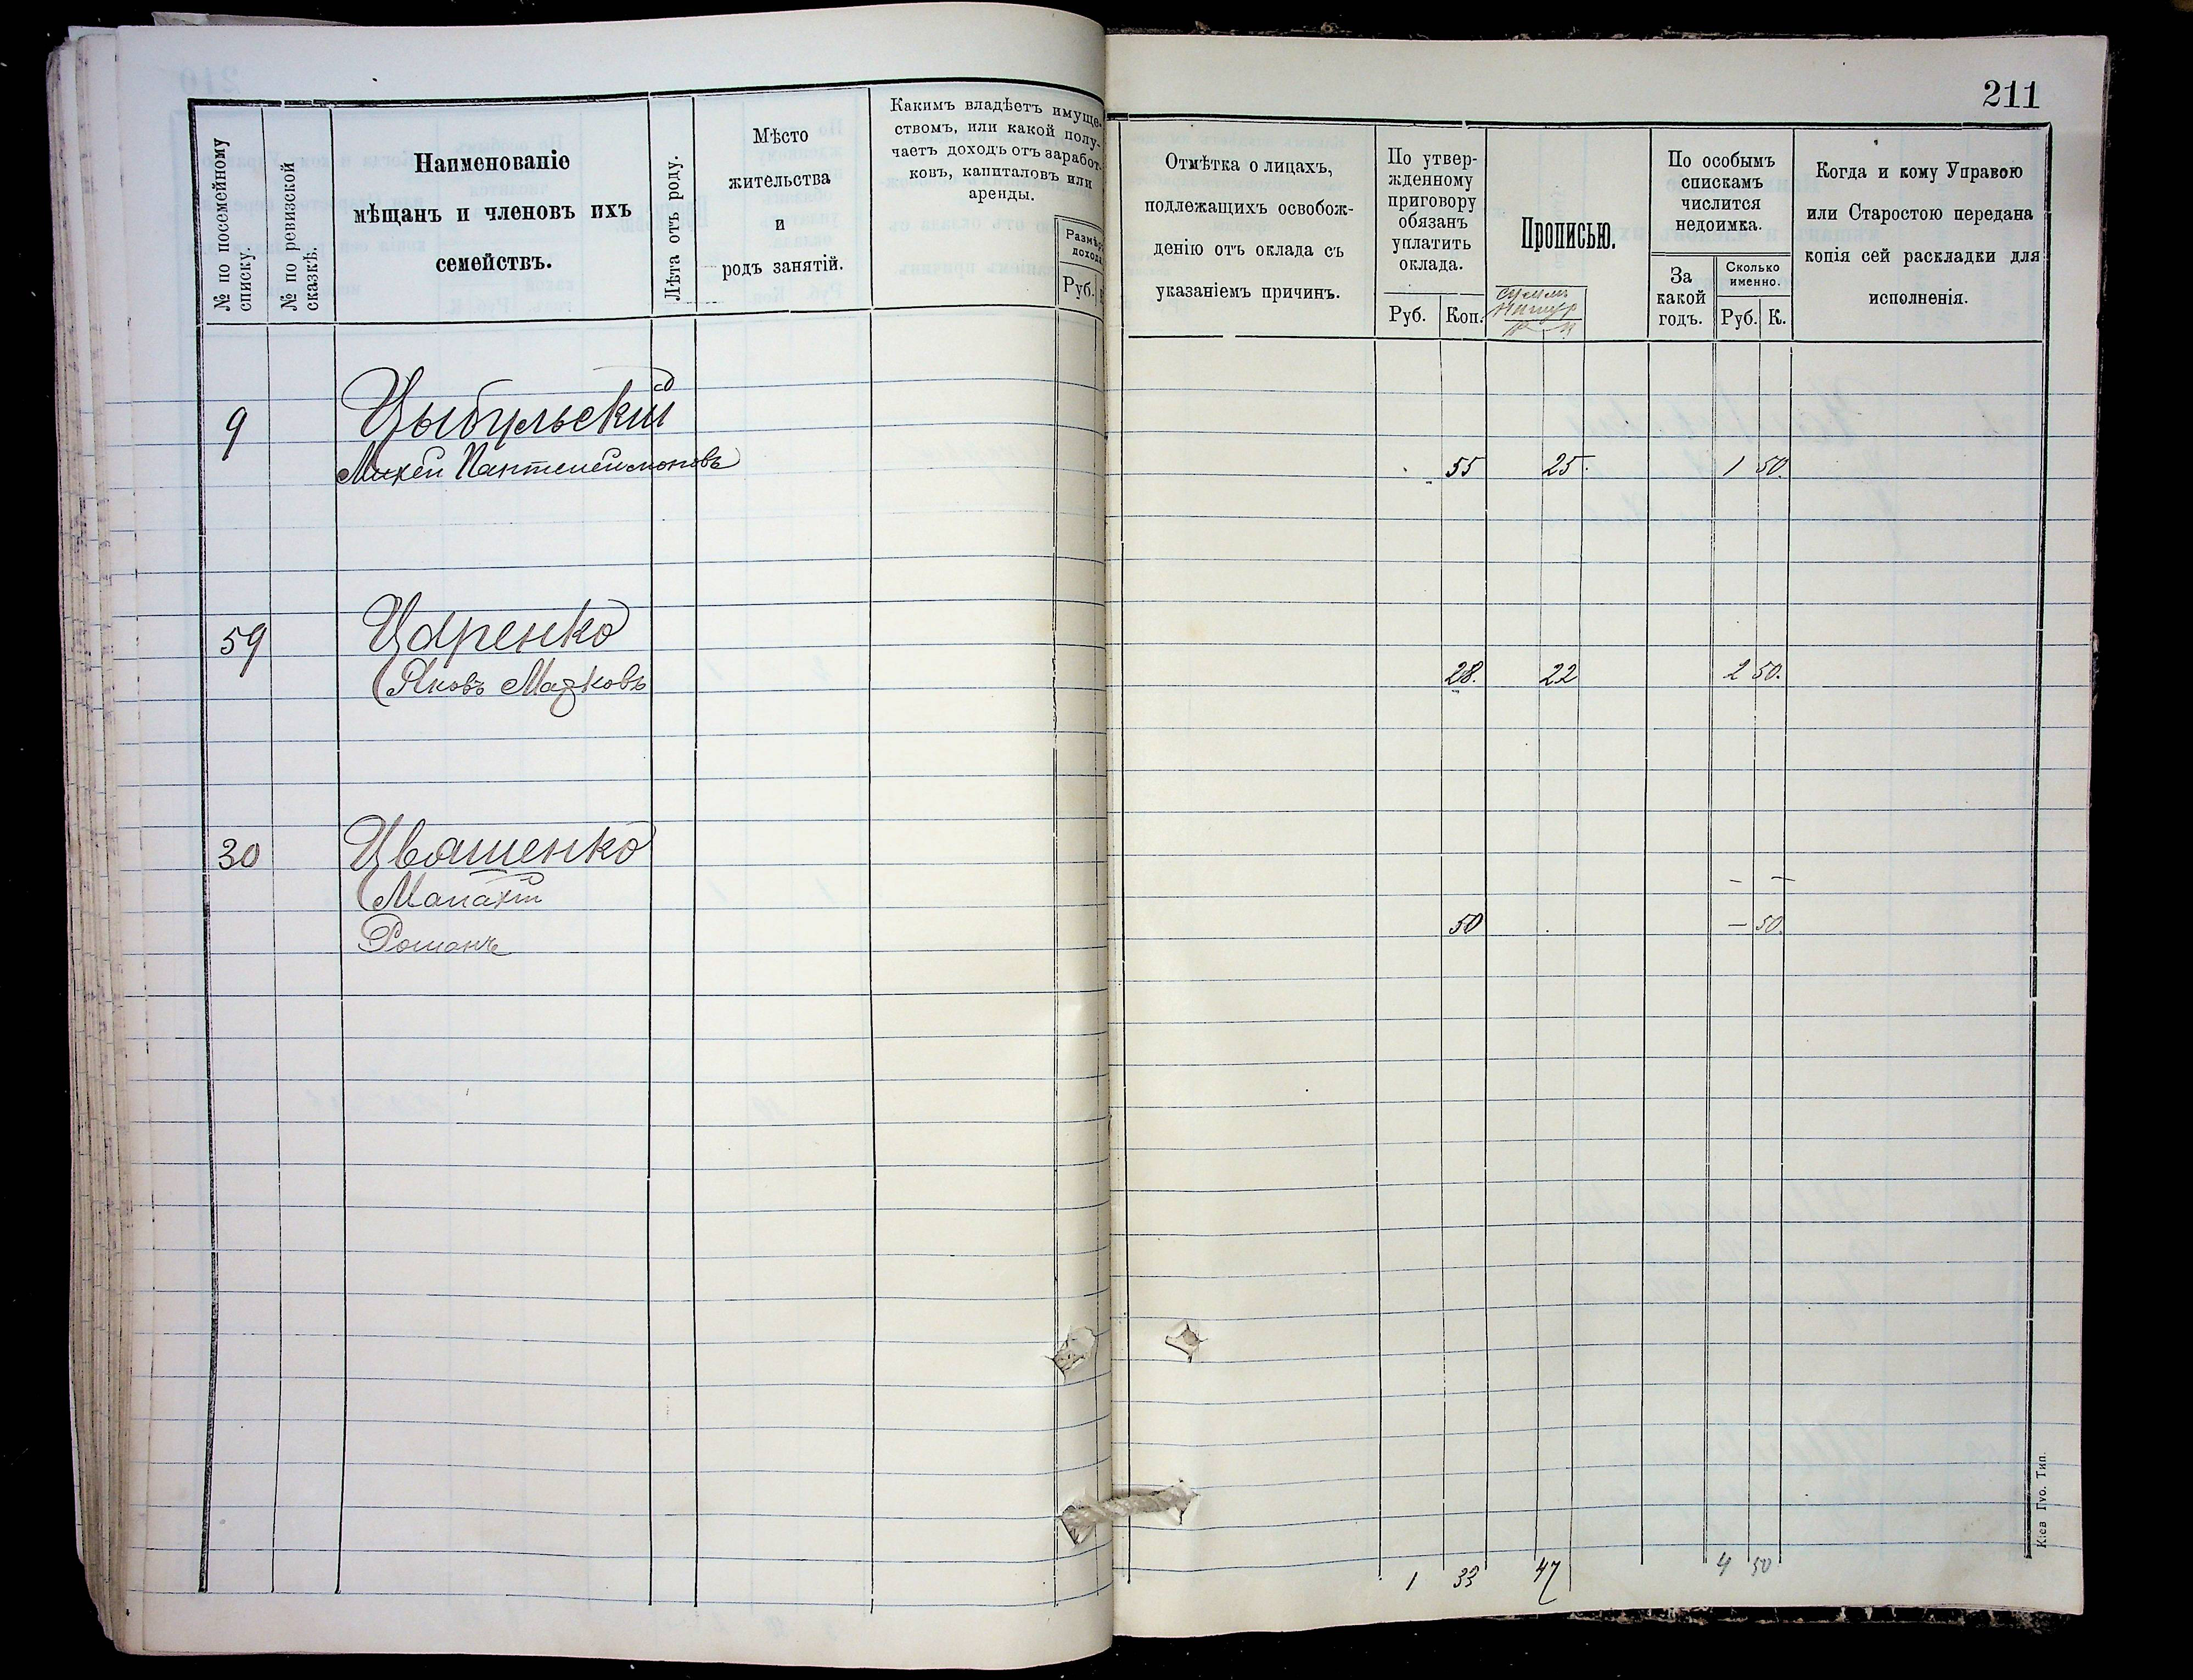 211
№ по посемейному
списку.
№ по ревизской
сказкѣ.
Наименованіе
мѣщанъ и членовъ ихъ
семействъ.
Лѣта отъ роду.
Мѣсто
жительства
и
родъ занятій.
Какимъ владѣетъ имуще-
ствомъ, или какой полу-
чаетъ доходъ отъ заработ-
ковъ, капиталовъ или
аренды.
Размѣръ
дохода
Руб.
Отмѣтка о лицахъ,
подлежащихъ освобож-
денію отъ оклада съ
указаніемъ причинъ.
По утвер-
жденному
приговору
обязанъ
уплатить
оклада.
Руб. Коп.
Прописью.
По особымъ
спискамъ
числится
недоимка.
За
какой
годъ.
Сколько
именно.
Руб. К.
Когда и кому Управою
или Старостою передана
копія сей раскладки для
исполненія.
9 Цыбульскій
Михей Пантелеймоновъ 55 25. 1 50
59 Царенко
Яковъ Марковъ 28. 22 2 50.
30 Цвашенко
Малахій — —
Романъ 50 — 50.
1 33 47 4 50
Кіев Губ. Тип.